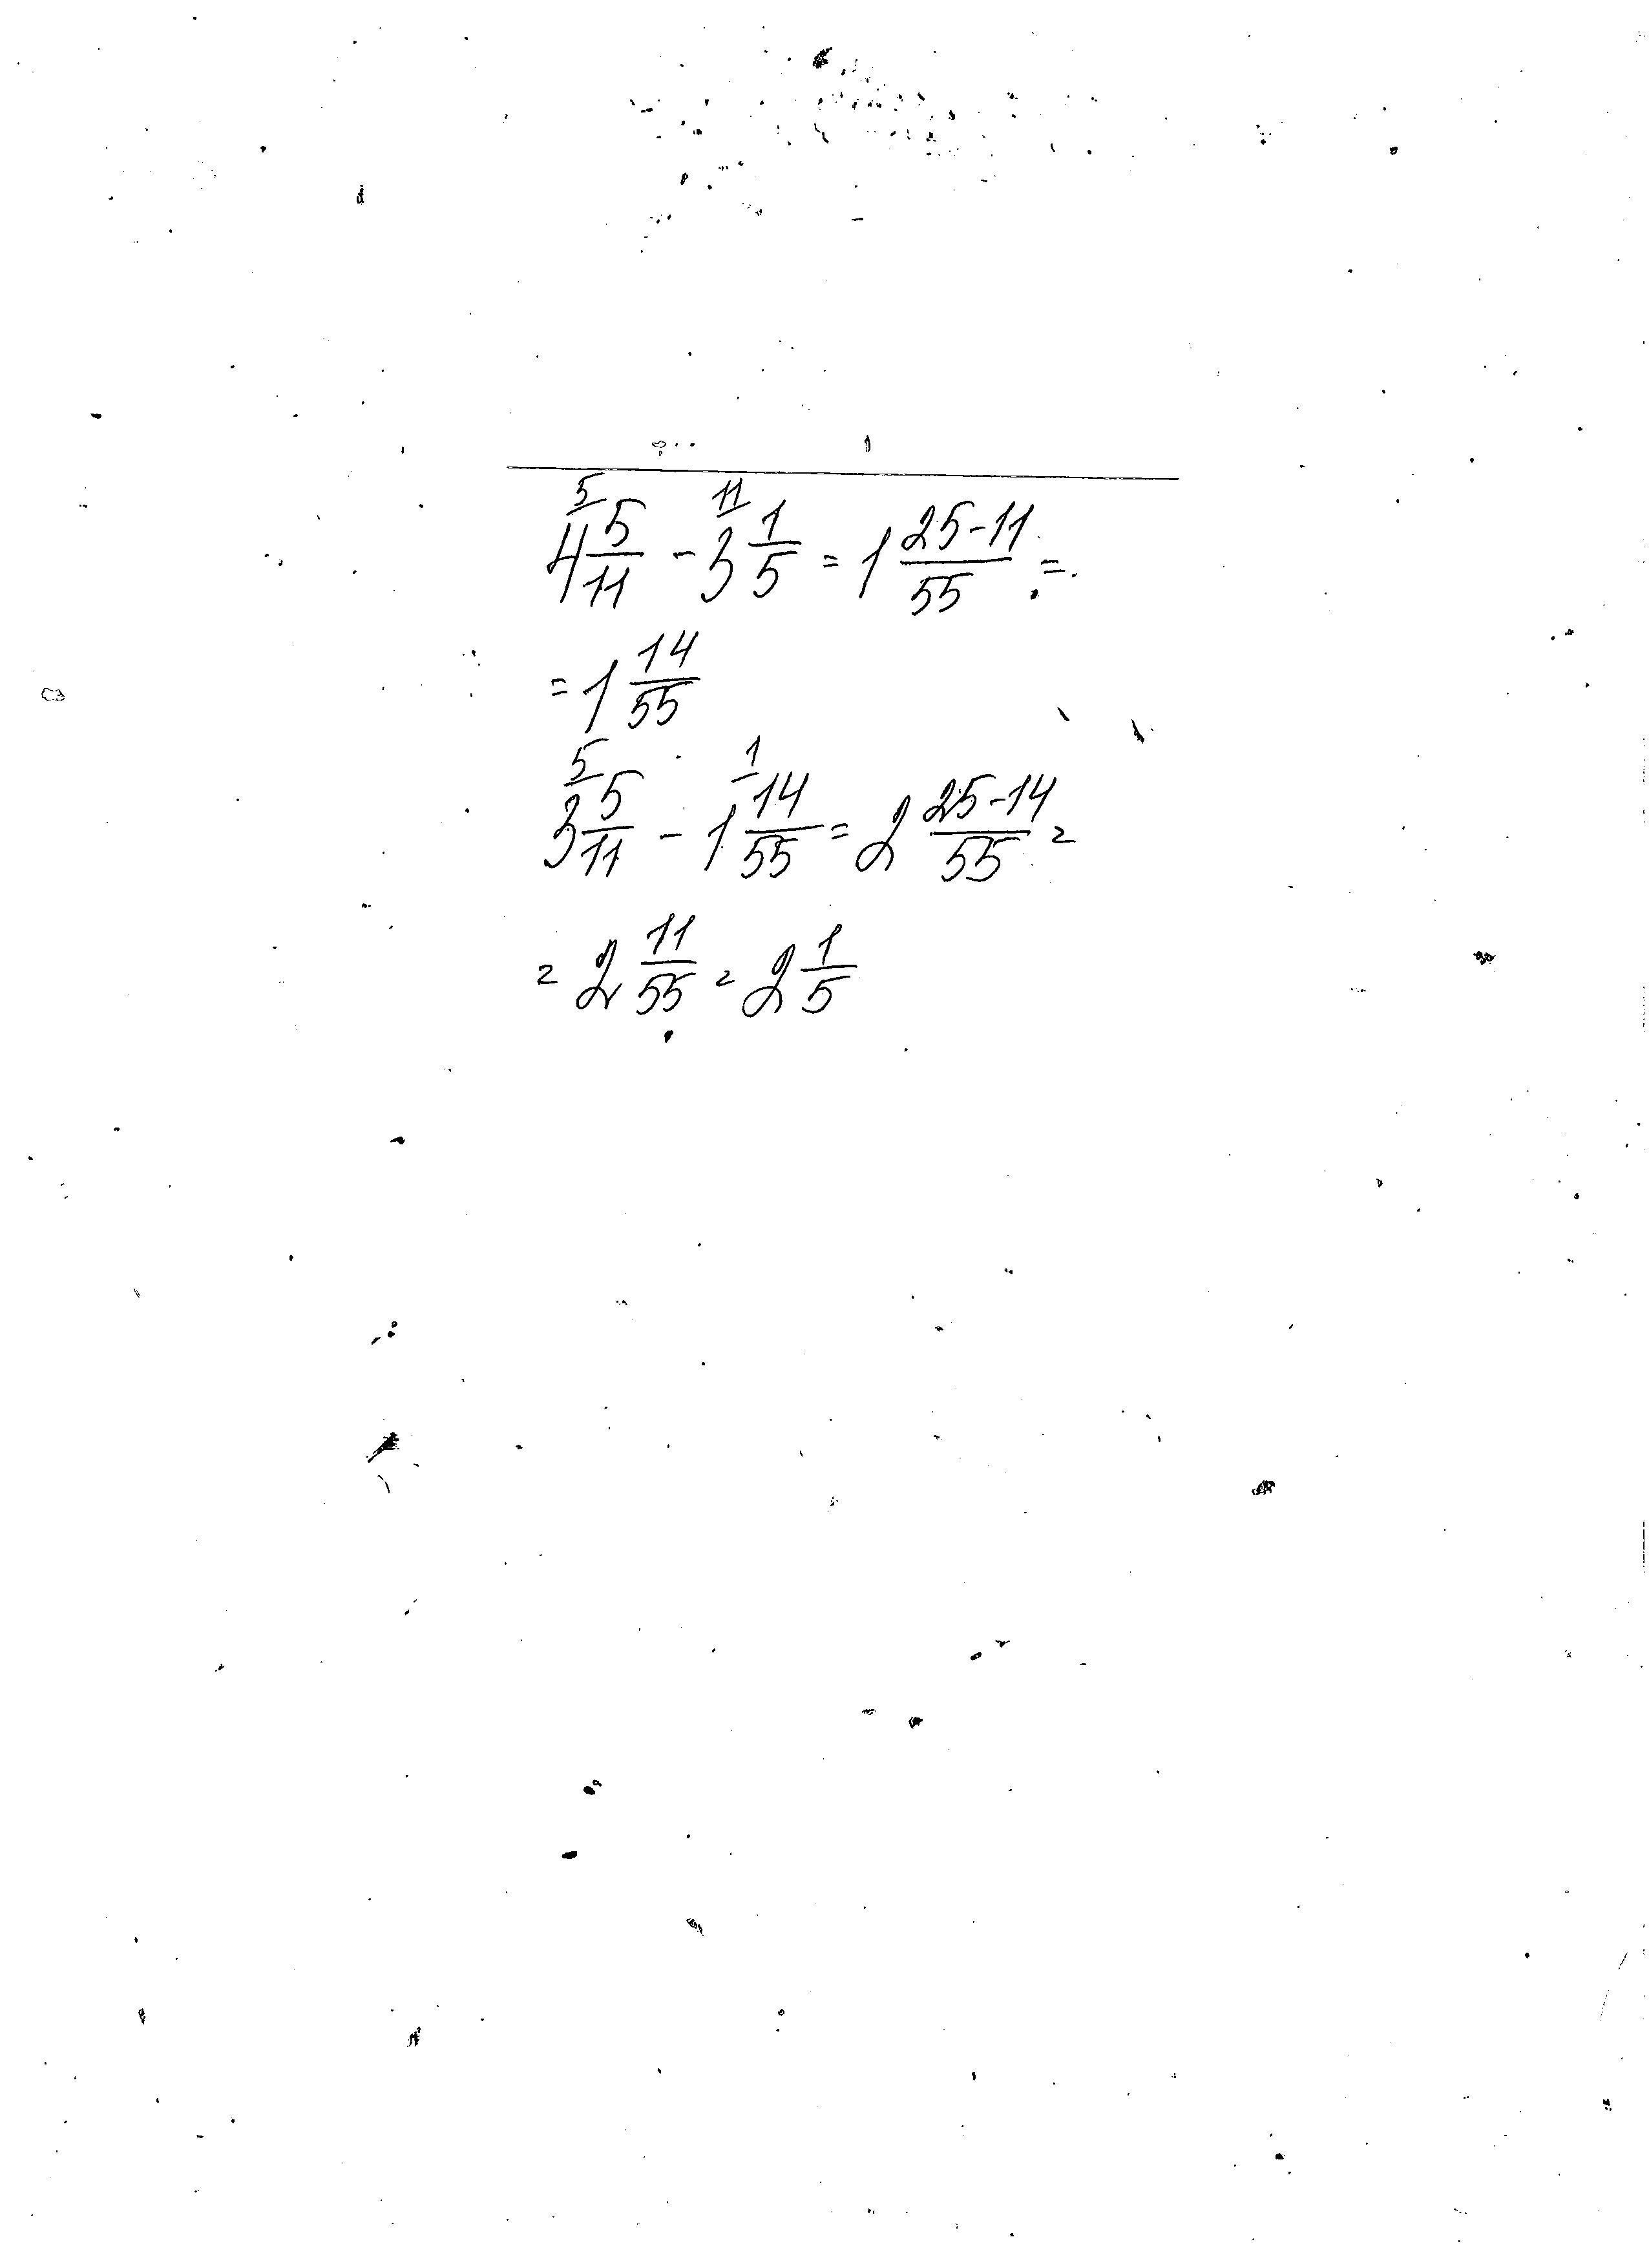 4 5/11 (5) - 3 1/5 (11) = 1 (25-11)/55 =
= 1 14/55
3 5/11 (5) - 1 14/55 (1) = 2 (25-14)/55 =
= 2 11/55 = 2 1/5